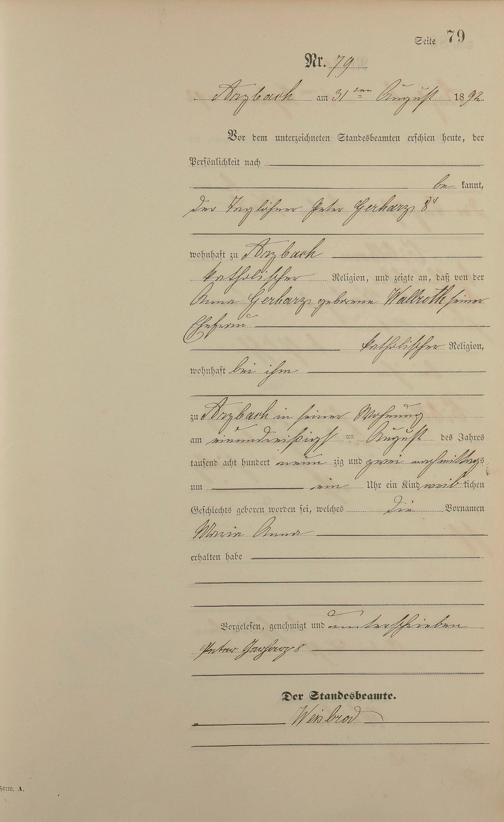 Seite 79
Nr. 79
Arzbach am 31 ten August 1892
Vor dem unterzeichneten Standesbeamten erschien heute, der
Persönlichkeit nach
be kannt,
der Taglöhner Peter Gerharz 8r
wohnhaft zu Arzbach
katholischer Religion, und zeigte an, daß von der
Anna Gerharz geborene Wallroth seiner
Ehefrau
katholischer Religion,
wohnhaft bei ihm
zu Arzbach in seiner Wohnung
am einunddreißigsten August des Jahres
tausend acht hundert neun zig und zwei nachmittags
um ein Uhr ein Kind weib lichen
Geschlechts geboren worden sei, welches die Vornamen
Maria Anna
erhalten habe
Vorgelesen, genehmigt und unterschrieben
Peter Gerharz 8
Der Standesbeamte.
Weisbrod
Form. A.